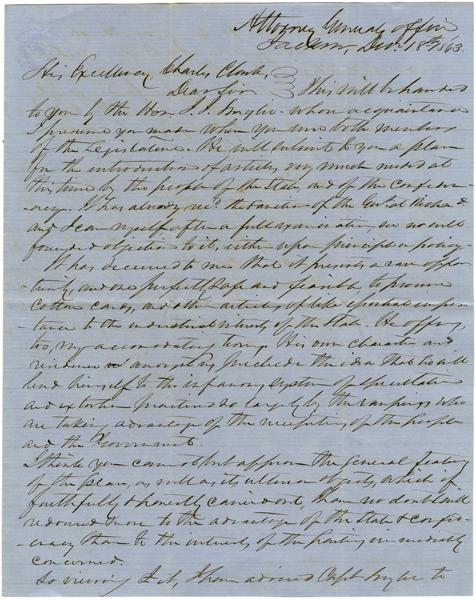 Attorney Generals office
Jackson, Decr 18th 1863.
His Excellency Charles Clark,
Dear Sir
This will be handed
to you by the Hon. whose acquaintance
I presume you made when you were both members
of the Legislature. He will submit to you a plan
for the introduction of articles very much needed at
this time by the people of the State, and of the Confede-
racy. It has already recd. the sanction of the
and I can myself after a full examination, see no well
founded objection to it, either upon principle or policy.
It has occurred to me that it presents a rare oppor-
tunity, and one perfectly safe and feasible, to procure
Cotton cards, and other articles of like especial impor-
tance to the industrial interests of the State. He offers,
too, very accomodating terms. His own character and
preclude the idea that he will
lend himself to the infamous system of speculation
and extortion practised so largely by the who
are taking advantage of the necessities of the people
and the Government.
I think you cannot but approve the general features
of the plan, as well as its ulterior objects, which if
faithfully & honestly carried out, I have no doubt will
redound more to the advantage of the State & confed-
eracy than to the interests of the parties immediately
concerned.
So viewing it, I have advised Capt to